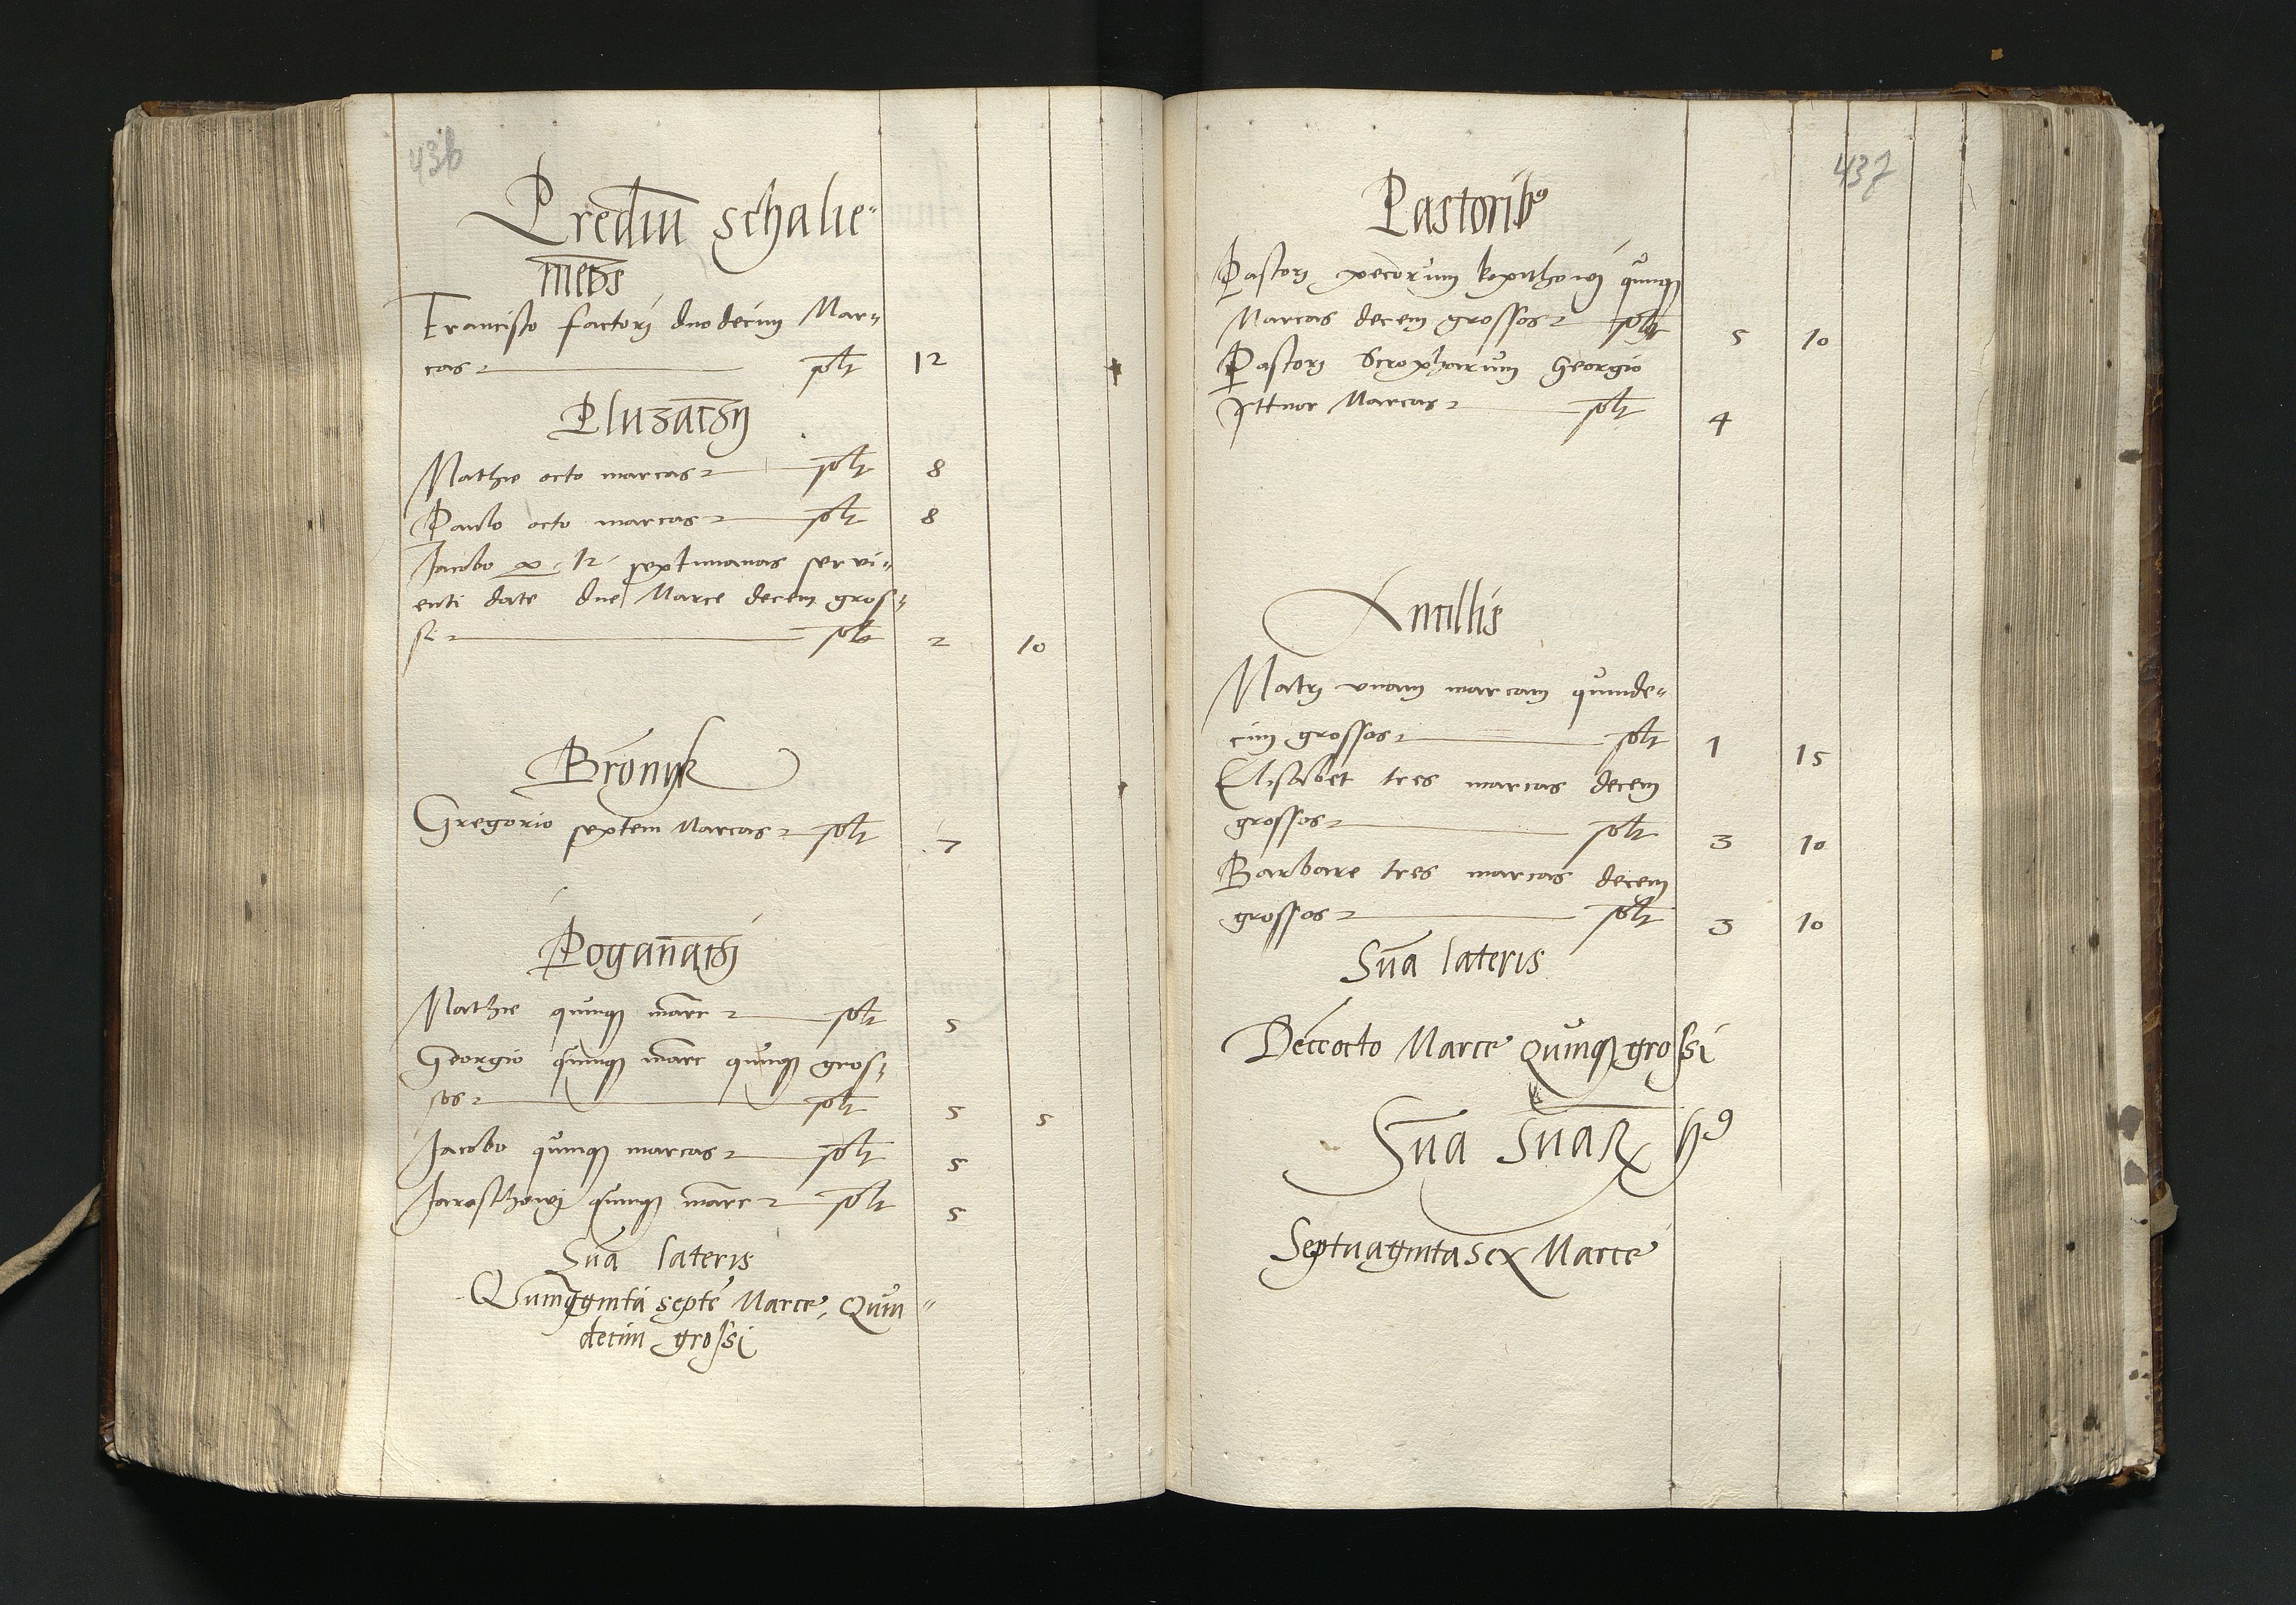 436
Prediu̅ schalie-
me̅s
Francisco factori duodecim Mar-
cas solt 12
Pluzatczy
Mathie octo marcas solt 8
Paulo octo marcas solt 8
Jacobo p 12 septimanas servi-
enti date due Marce decem gros-
si solt 2 10
Bronyk
Gregorio septem Marcas solt 7
Poganiaczy
Mathie quinqꝫ marc solt 5
Georgio quinqꝫ marc quinqꝫ gros-
sos solt 5 5
Jacobo quinqꝫ marcas solt 5
Jarosthowi quinqꝫ marc solt 5
Sua̅ lateris
Qui̅nqginta septe̅ Marce, Quin-
decim grossi
437
Pastoribꝰ
Pastori pecorum quinqꝫ
Marcas decem grossos solt 5 10
Pastori Scropharum Georgio
qttuor Marcas solt 4
Ancillis
Matri unam marcam quinde-
cim grossos solt 1 15
Elisabet tres marcas decem
grossos solt 3 10
Barbare tres marcas decem
grossos solt 3 10
Sua̅ lateris
Deceocto Marce Quinqꝫ grossi
Sua̅ Sua̅ꝝ hꝰ
Septuaginta sex Marce